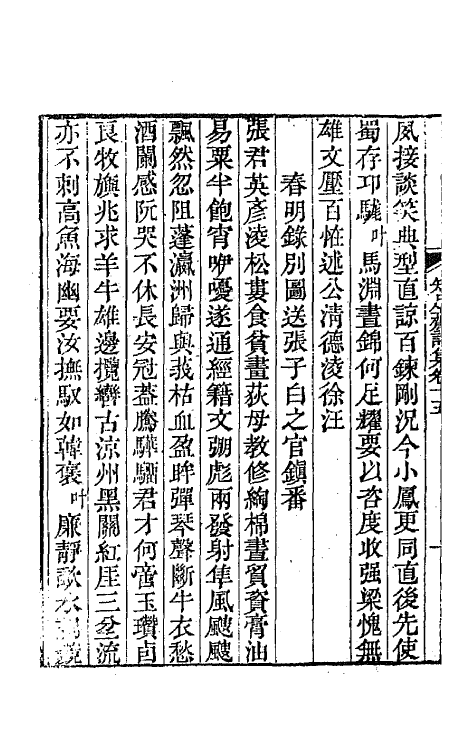 風接談笑典型直諒百鍊剛況今小鳳更同直後先使
蜀存邛驖叶馬淵晝錦何足耀要以咨度收强梁愧無
雄文壓百怪述公淸德淩徐汪
春明錄別圖送張子白之官鎭番
張君英彥淩松婁食貧晝荻母教修絢棉晝貿資膏油
易粟半飽宵咿嚘遂通經籍文弸彪兩發射隼風颼颼
飄然忽阻蓬瀛洲歸與我枯血盈眸彈琴聲斷牛衣愁
酒闌感阮哭不休長安冠蓋騰驊騮君才何啻玉瓚卣
良牧旟兆求羊牛雄邊攬轡古涼州黑關紅厓三岔流
亦不剌高魚海幽要汝撫馭如韓褒叶廉靜歌水
卷十五
一